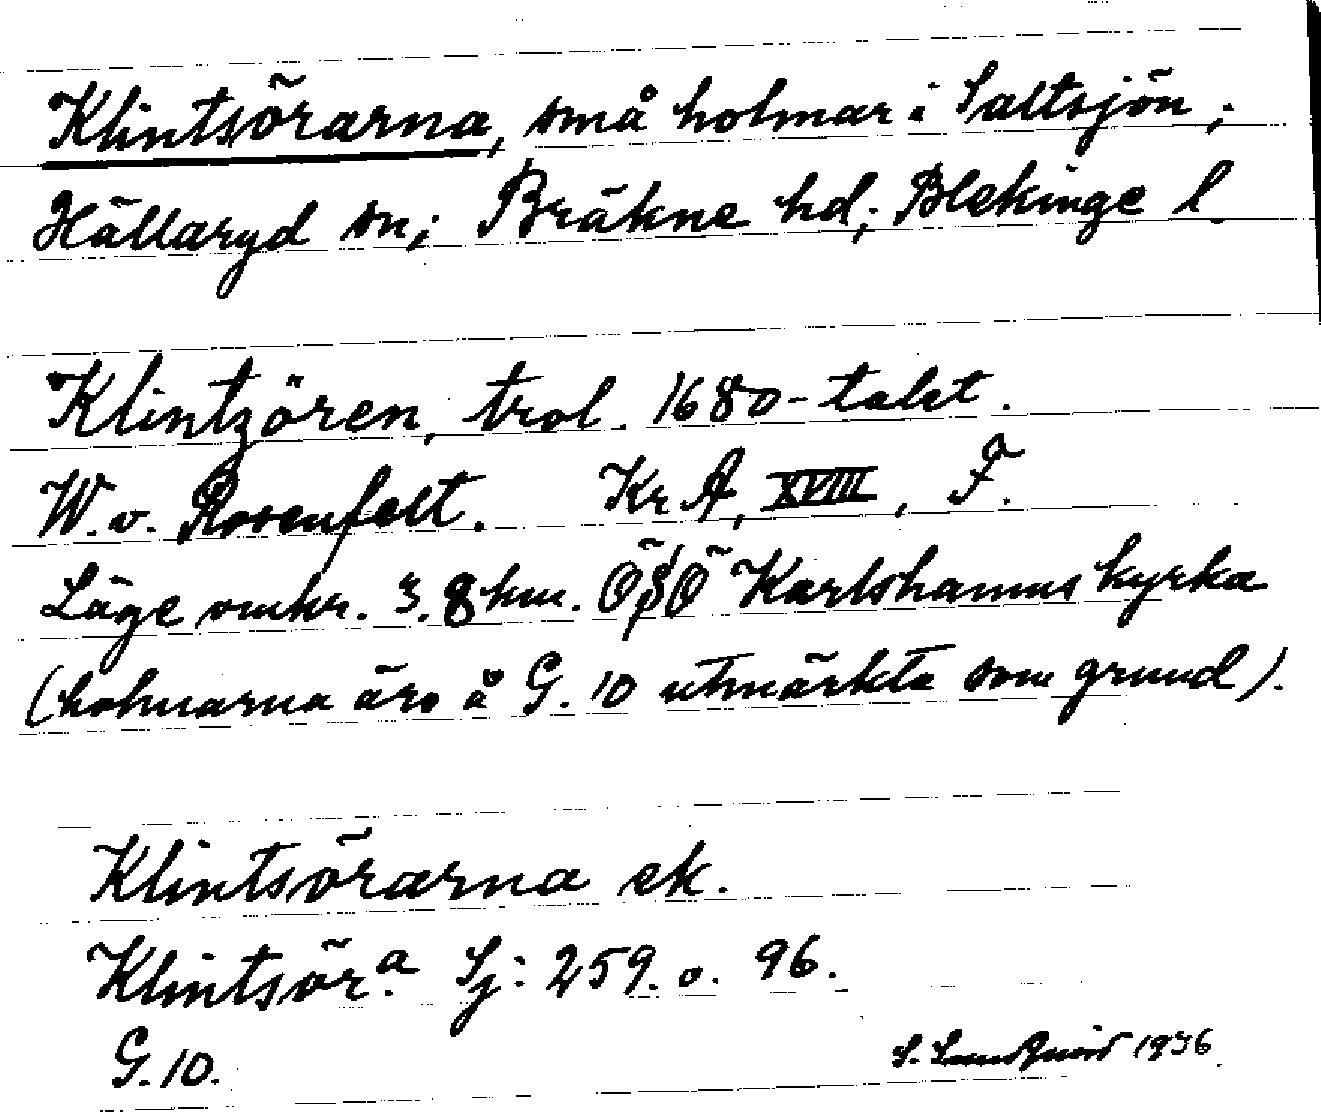 Klintsörarna, små holmar i Saltsjön;
Hällaryd sn; Bräkne hd; Blekinge l
Klintzören, trol. 1680-talet.
W. v. Rosenfelt. Kr A, XVIII, F.
Läge omkr. 3.8 km. Ö§Ö Karlshamns kyrka
(holmarna äro å G. 10 utmärkta som grund).
Klintsörarna ek.
Klintsör.a Sj: 259. o. 96.
G. 10.
S. 1936